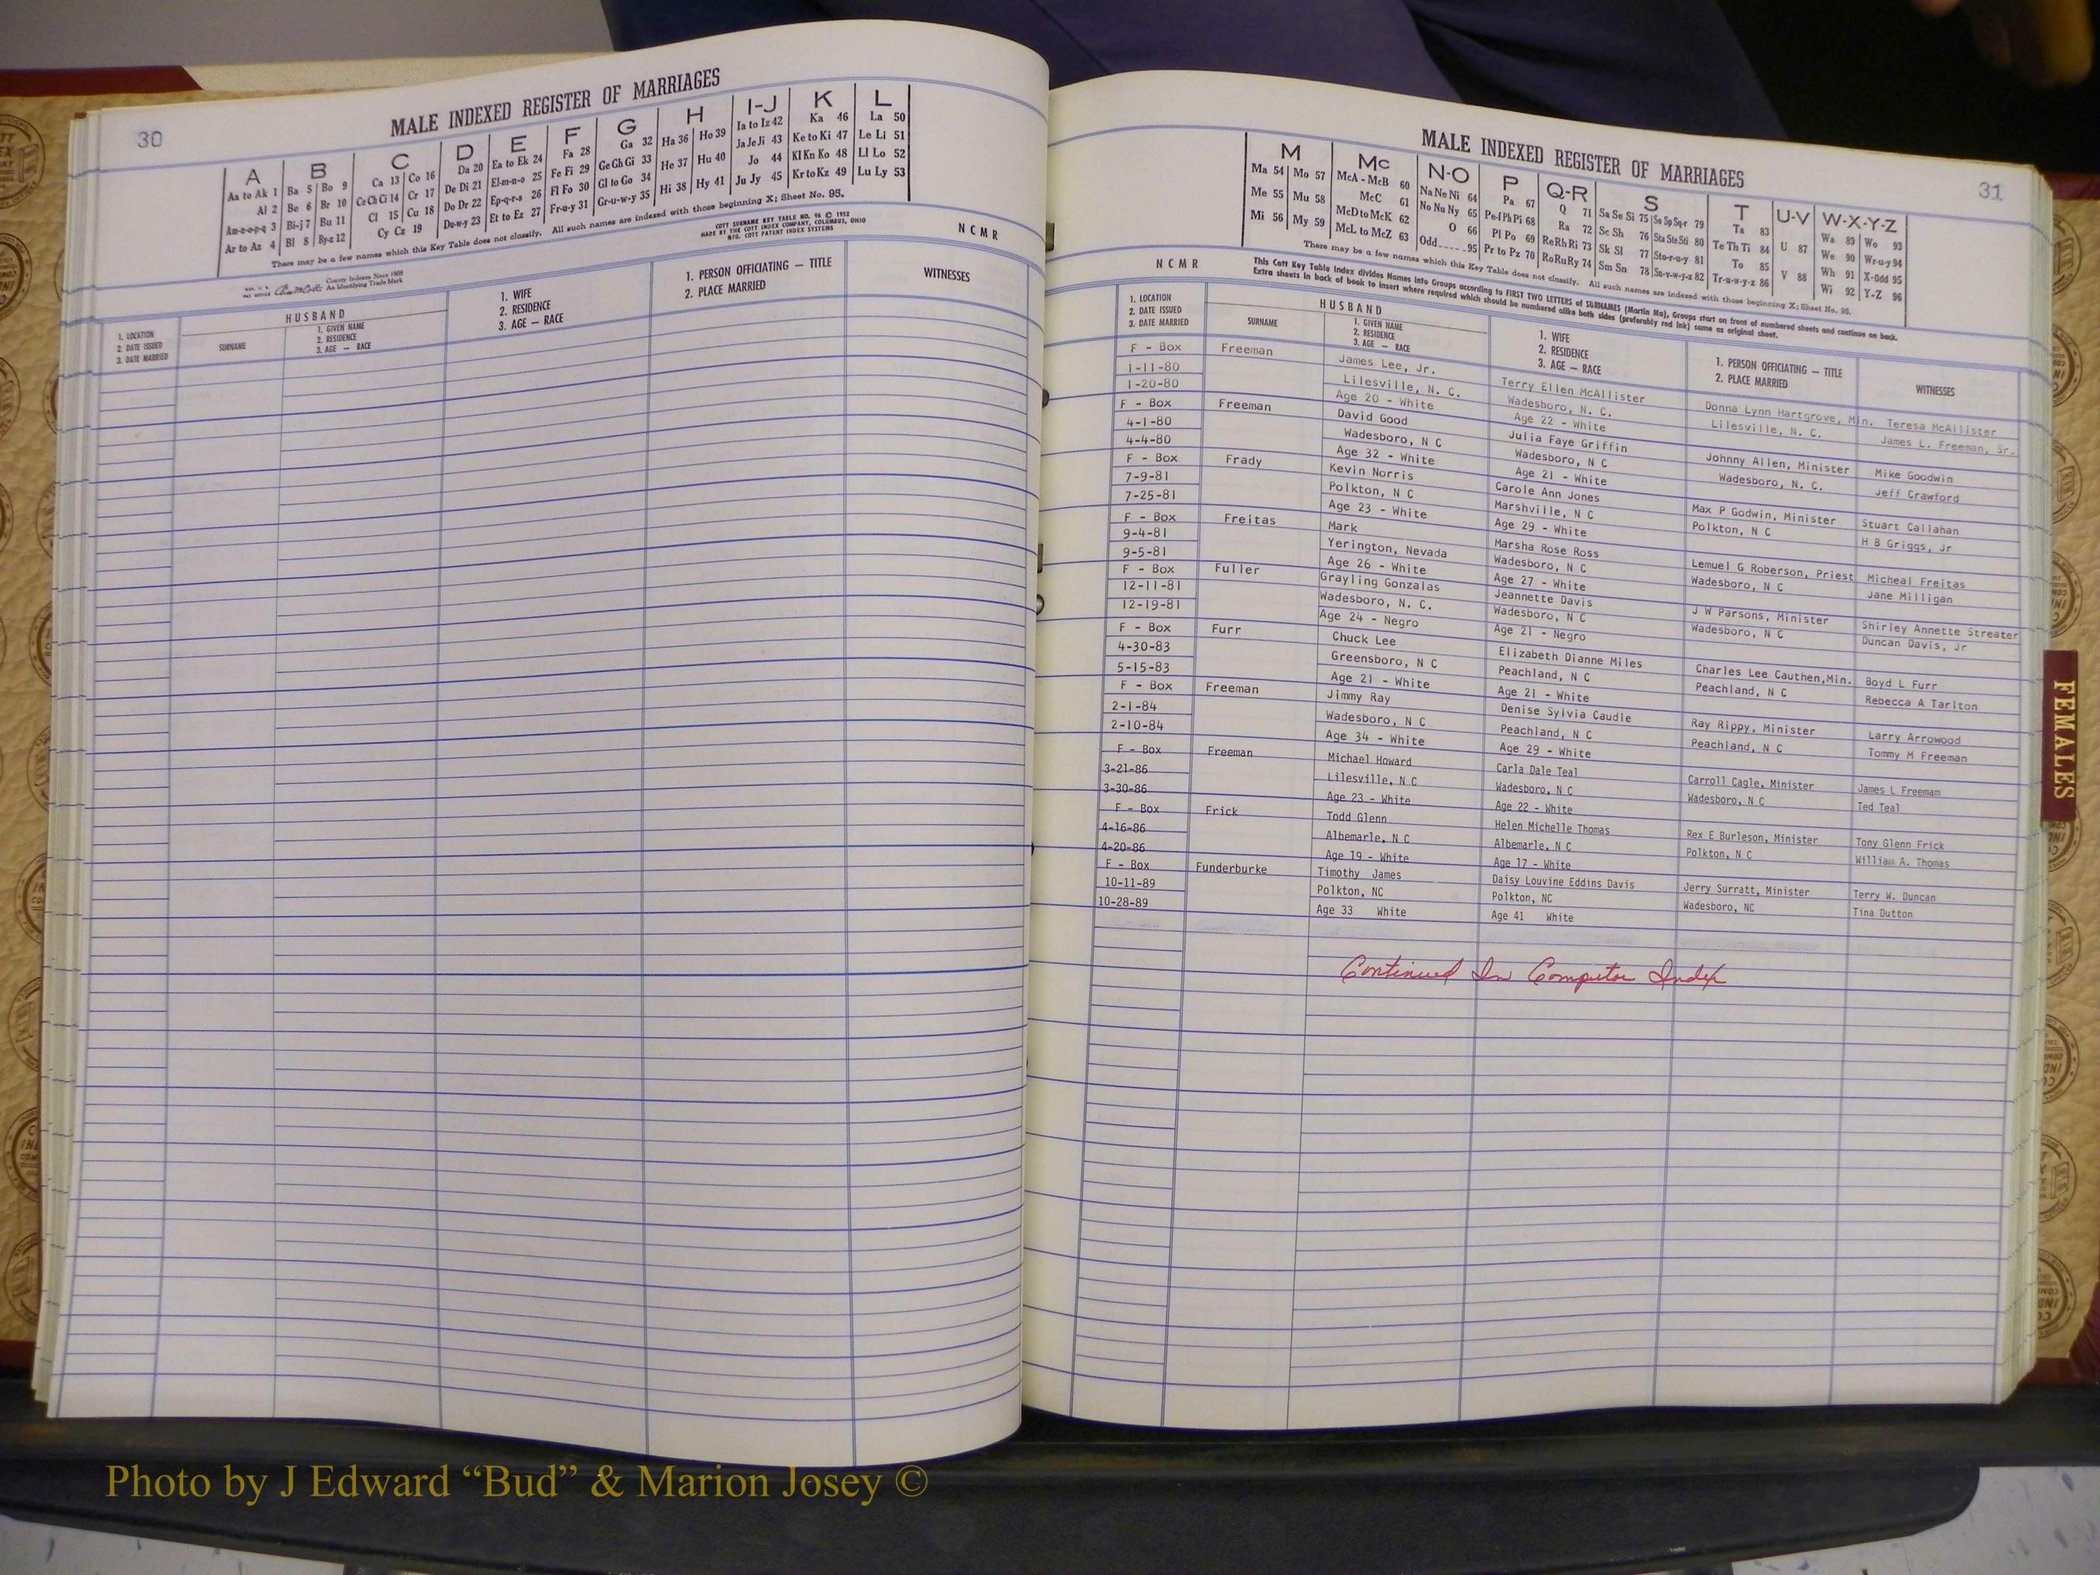 30
MALE INDEXED REGISTER OF MARRIAGES
A B C D E F G H I-J K L
Aa to Ak 1 Ba 5 Bo 9 Ca 13 Co 16 Da 20 Ea to Ek 24 Fa 28 Ga 32 Ha 36 Ho 39 Ia to Iz 42 Ka 46 La 50
Al 2 Be 6 Br 10 Ce Ch Ci 14 Cr 17 De Di 21 El-m-n-o 25 Fe Fi 29 Ge Gh Gi 33 He 37 Hu 40 Ja Je Ji 43 Ke to Ki 47 Le Li 51
Am-n-o-p-q 3 Bi-j 7 Bu 11 Cl 15 Cu 18 Do Dr 22 Ep-q-r-s 26 Fl Fo 30 Gl to Go 34 Hi 38 Hy 41 Jo 44 Kl Kn Ko 48 Ll Lo 52
Ar to Az 4 Bl 8 By-z 12 Cy Cz 19 Du-w-y 23 Et to Ez 27 Fr-u-y 31 Gr-u-w-y 35 Ju Jy 45 Kr to Kz 49 Lu Ly 53
There may be a few names which this Key Table does not classify. All such names are indexed with those beginning X; Sheet No. 95.
COTT SURNAME KEY TABLE NO. 96 © 1952
MADE BY THE COTT INDEX COMPANY, COLUMBUS, OHIO
MFG. COTT PATENT INDEX SYSTEMS
N C M R
County Indexes Since 1888
An Identifying Trade Mark
1. LOCATION
2. DATE ISSUED
3. DATE MARRIED
HUSBAND
SURNAME
1. GIVEN NAME
2. RESIDENCE
3. AGE — RACE
1. WIFE
2. RESIDENCE
3. AGE — RACE
1. PERSON OFFICIATING — TITLE
2. PLACE MARRIED
WITNESSES
31
MALE INDEXED REGISTER OF MARRIAGES
M Mc N-O P Q-R S T U-V W-X-Y-Z
Ma 54 Mo 57 McA - McB 60 Na Ne Ni 64 Pa 67 Q 71 Sa Se Si 75 So Sp Sq-r 79 Ta 83 U 87 Wa 89 Wo 93
Me 55 Mu 58 McC 61 No Nu Ny 65 Pe-f Ph Pi 68 Ra 72 Sc Sh 76 Sta Ste Sti 80 Te Th Ti 84 V 88 We 90 Wr-u-y 94
Mi 56 My 59 McD to McK 62 O 66 Pl Po 69 Re Rh Ri 73 Sk Sl 77 Sto-r-u-y 81 To 85 Wh 91 X-Odd 95
McL to McZ 63 Odd 95 Pr to Pz 70 Ro Ru Ry 74 Sm Sn 78 Su-v-w-y-z 82 Tr-u-w-y-z 86 Wi 92 Y-Z 96
There may be a few names which this Key Table does not classify. All such names are indexed with those beginning X; Sheet No. 95.
N C M R
This Cott Key Table Index divides Names into Groups according to FIRST TWO LETTERS of SURNAMES (Martin Ma), Groups start on front of numbered sheets and continue on back.
Extra sheets in back of book to insert where required which should be numbered alike both sides (preferably red ink) same as original sheet.
1. LOCATION
2. DATE ISSUED
3. DATE MARRIED
HUSBAND
SURNAME
1. GIVEN NAME
2. RESIDENCE
3. AGE — RACE
1. WIFE
2. RESIDENCE
3. AGE — RACE
1. PERSON OFFICIATING — TITLE
2. PLACE MARRIED
WITNESSES
F - Box Freeman James Lee, Jr. Terry Ellen McAllister Donna Lynn Hartgrove, Min. Teresa McAllister
1-11-80 Lilesville, N. C. Wadesboro, N. C. Lilesville, N. C. James L. Freeman, Sr.
1-20-80 Age 20 - White Age 22 - White
F - Box Freeman David Good Julia Faye Griffin Johnny Allen, Minister Mike Goodwin
4-1-80 Wadesboro, N C Wadesboro, N C Wadesboro, N. C. Jeff Crawford
4-4-80 Age 32 - White Age 21 - White
F - Box Frady Kevin Norris Carole Ann Jones Max P Godwin, Minister Stuart Callahan
7-9-81 Polkton, N C Marshville, N C Polkton, N C H B Griggs, Jr
7-25-81 Age 23 - White Age 29 - White
F - Box Freitas Mark Marsha Rose Ross Lemuel G Roberson, Priest Micheal Freitas
9-4-81 Yerington, Nevada Wadesboro, N C Wadesboro, N C Jane Milligan
9-5-81 Age 26 - White Age 27 - White
F - Box Fuller Grayling Gonzalas Jeannette Davis J W Parsons, Minister Shirley Annette Streater
12-11-81 Wadesboro, N. C. Wadesboro, N C Wadesboro, N C Duncan Davis, Jr
12-19-81 Age 24 - Negro Age 21 - Negro
F - Box Furr Chuck Lee Elizabeth Dianne Miles Charles Lee Cauthen,Min. Boyd L Furr
4-30-83 Greensboro, N C Peachland, N C Peachland, N C Rebecca A Tarlton
5-15-83 Age 21 - White Age 21 - White
F - Box Freeman Jimmy Ray Denise Sylvia Caudle Ray Rippy, Minister Larry Arrowood
2-1-84 Wadesboro, N C Peachland, N C Peachland, N C Tommy M Freeman
2-10-84 Age 34 - White Age 29 - White
F - Box Freeman Michael Howard Carla Dale Teal Carroll Cagle, Minister James L Freemam
3-21-86 Lilesville, N C Wadesboro, N C Wadesboro, N C Ted Teal
3-30-86 Age 23 - White Age 22 - White
F - Box Frick Todd Glenn Helen Michelle Thomas Rex E Burleson, Minister Tony Glenn Frick
4-16-86 Albemarle, N C Albemarle, N C Polkton, N C William A. Thomas
4-20-86 Age 19 - White Age 17 - White
F - Box Funderburke Timothy James Daisy Louvine Eddins Davis Jerry Surratt, Minister Terry W. Duncan
10-11-89 Polkton, NC Polkton, NC Wadesboro, NC Tina Dutton
10-28-89 Age 33 White Age 41 White
Continued In Computer Index
FEMALES
Photo by J Edward “Bud” & Marion Josey ©